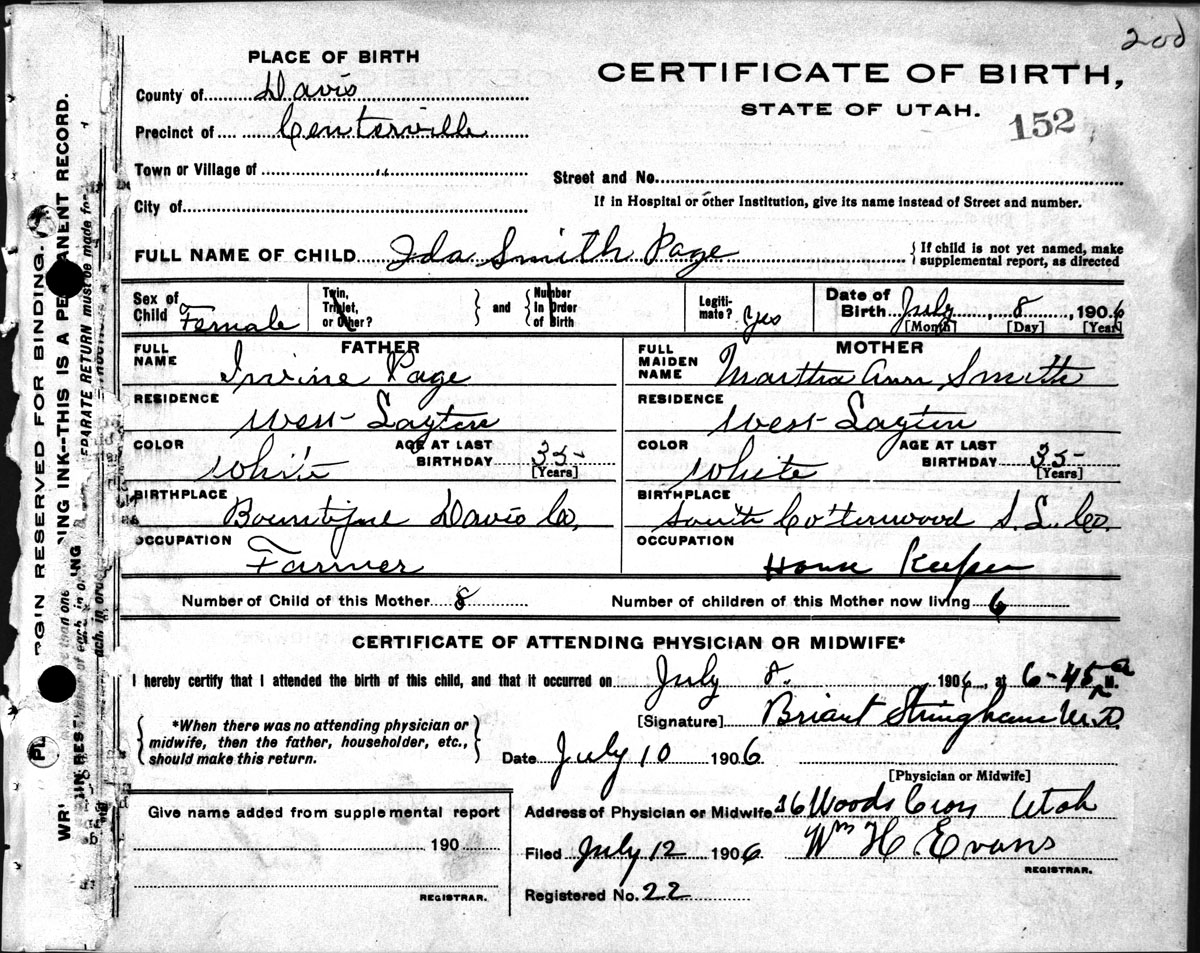 200
PLACE OF BIRTH
CERTIFICATE OF BIRTH,
STATE OF UTAH.
152
County of Davis
Precinct of Centerville
Town or Village of "
Street and No.
City of
If in Hospital or other Institution, give its name instead of Street and number.
FULL NAME OF CHILD Ida Smith Page { If child is not yet named, make supplemental report, as directed
Sex of Child Female
Twin, Triplet, or Other? } and { Number In Order of Birth
Legitimate? Yes
Date of Birth July, 8, 1906
[Month] [Day] [Year]
FATHER
FULL NAME Irvine Page
RESIDENCE West Layton
COLOR White AGE AT LAST BIRTHDAY 35 [Years]
BIRTHPLACE Bountiful Davis Co,
OCCUPATION Farmer
MOTHER
FULL MAIDEN NAME Martha Ann Smith
RESIDENCE West Layton
COLOR White AGE AT LAST BIRTHDAY 35 [Years]
BIRTHPLACE South Co'tenwood S. L. Co.
OCCUPATION House Keeper
Number of Child of this Mother 8 Number of children of this Mother now living 6
CERTIFICATE OF ATTENDING PHYSICIAN OR MIDWIFE*
I hereby certify that I attended the birth of this child, and that it occurred on July 8. 1906, at 6-45 a M.
{ *When there was no attending physician or midwife, then the father, householder, etc., should make this return. }
[Signature] Briant Stringham M.D
Date July 10 1906.
[Physician or Midwife]
Give name added from supplemental report
190
REGISTRAR.
Address of Physician or Midwife 16 Woods Cross Utah
Filed July 12 1906. Wm H. Evans
REGISTRAR.
Registered No. 22
RGIN RESERVED FOR BINDING.
WR ING INK--THIS IS A PE ANENT RECORD.
EPARATE RETURN must be made for